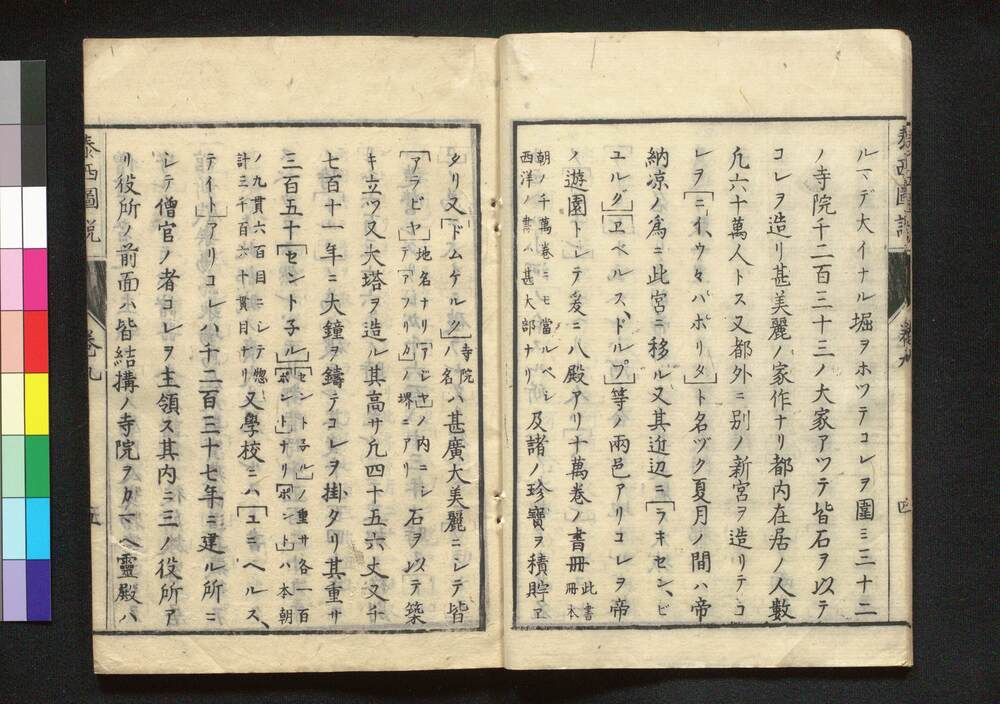 ルマデ大イナル堀ヲホツテコレヲ圍ミ三十二
ノ寺院千二百三十三ノ大家アツテ皆石ヲ以テ
コレヲ造リ甚美麗ノ家作ナリ都内在居ノ人數
凡六十萬人トス又都外ニ別ノ新宮ヲ造リテコ
レヲ「ニイ、ウヽバボリタ」ト名ヅク夏月ノ間ハ帝
納凉ノ為ニ此宮ニ移ル又其近辺ニ「ラキセン、ビ
ユルグ」「ヱベルス、ドルプ」等ノ兩邑アリコレヲ帝
ノ遊園トシテ爰ニ八殿アリ十萬卷ノ書冊此書冊本
朝ノ千萬卷ニモ當ルベシ西洋ノ書ハ甚大部ナリ及諸ノ珍寶ヲ積貯ヱ
四
泰西圖說
卷九
タリ又「ドムケルク」寺院ノ名ハ甚廣大美麗ニシテ皆
「アラビヤ」地名ナリ「アシヤ」ノ内ニシテ「アフリカ」ノ堺ニアリ石ヲ以テ築
キ立ツ又大塔ヲ造ル其高サ凡四十五六丈又千
七百十一年ニ大鐘ヲ鑄テコレヲ掛タリ其重サ
三百五十「セント子ル」「セント子ル」ノ重サ各一百「ポント」ナリ「ポント」ハ本朝
ノ九貫六百目ニシテ惣計三千百六十貫目ナリ又學校ニハ「ユニヘルス、
テイト」アリコレハ千二百三十七年ニ建ル所ニ
シテ僧官ノ者コレヲ主領ス其内ニ三ノ役所ア
リ役所ノ前面ハ皆結構ノ寺院ヲカマヘ靈殿ハ
泰西圖說
卷九
五